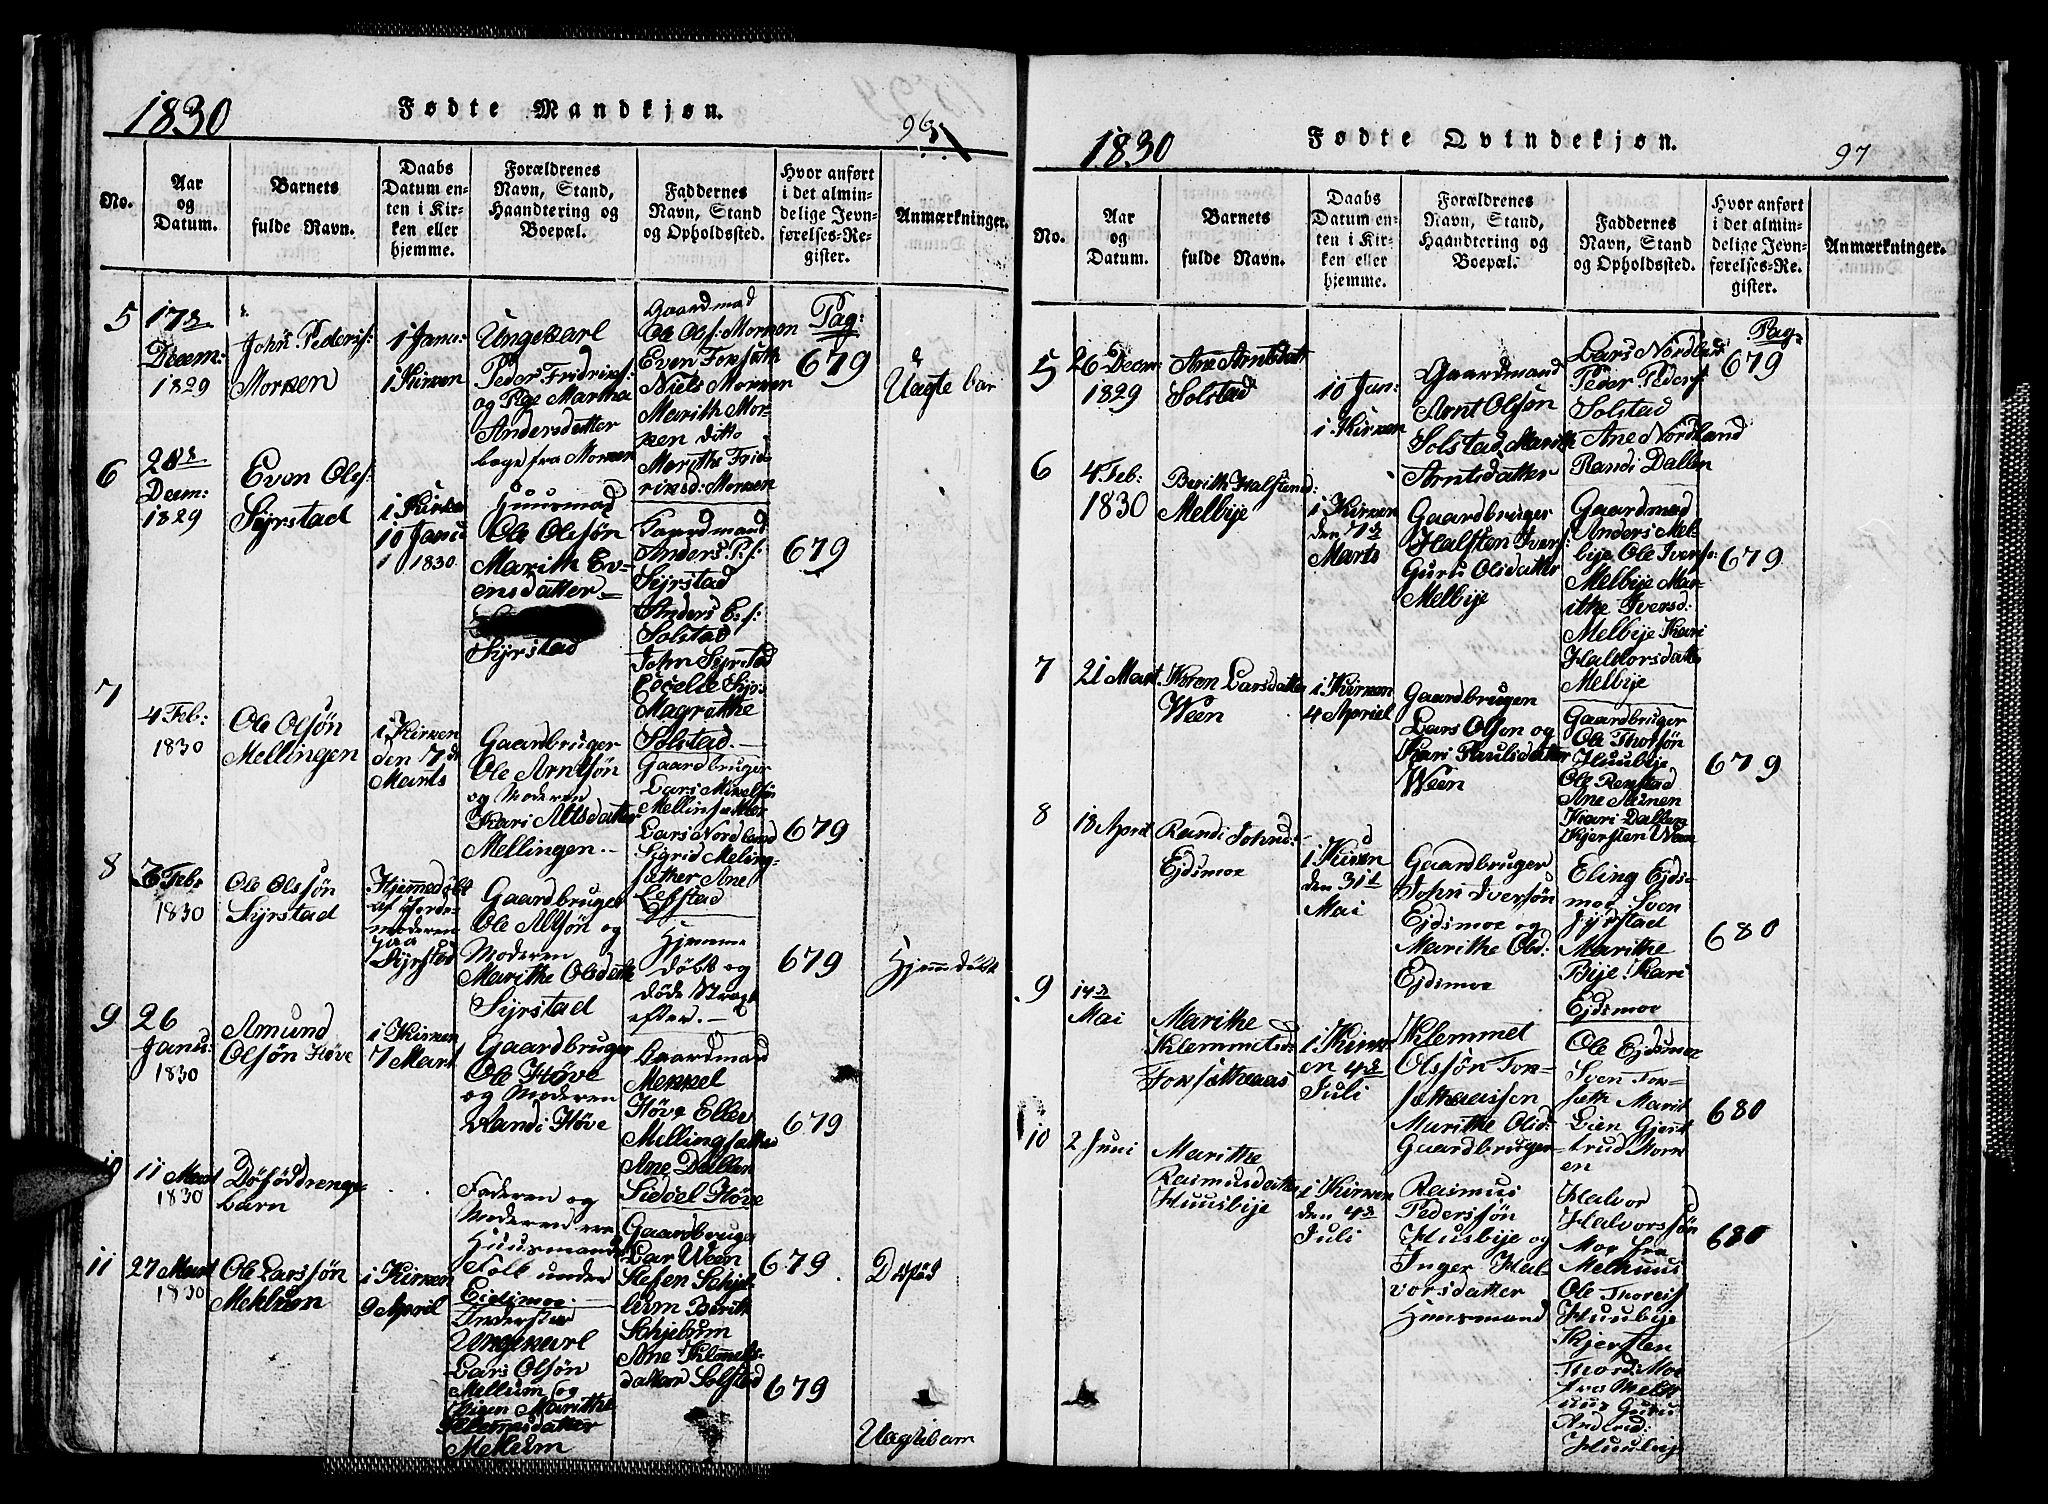 1830
Fødte Mandkjøn.
96
No.
Aar
og
Datum.
Barnets
fulde Navn.
Daabs
Datum en-
ten i Kir-
ken eller
hjemme.
Forældrenes
Navn, Stand,
Haandtering og
Boepæl.
Faddernes
Navn, Stand
og Opholdssted.
Hvor anført
i det almin-
delige Jevn-
førelses-Re-
gister.
Anmærkninger.
5
17de
Decem:
1829
John Peders:
Morken
1 Janu:
i Kirken
Ungekarl
Peder Fridrix:
og Pige Martha
Andersdatter
bege fra Morken
Gaardmad
Ole Ols: Morken
Even Forsæth
Niels Morken
Marith Mor-
ken ditto
Marithe Frid-
rixsd: Morken
Pag:
679
6
Decem:
1829
Even Ols:
Syrstad
i Kirken
10 Janu
1830
Huusmad
Ole Olsøn
Marith Ev-
ensdatter
Syrstad
Gaardmand
Anders P:s:
Syrstad
Anders E:s:
Solstad
John Syrstad
Magrethe
Solstad.
679
Uægte bar
7
4 Feb:
1830
Ole Olsøn
Mellingen
i Kirken
den 7d
Marts
Gaardbruger
Ole Arntsøn
og Moderen
Kari Altsdatter
Mellingen
Gaardbruger
Lars Mikelsøn
Mellinsæther
Lars Nordland
Sigrid Meling-
sæther Ane
Lefstad
679
8
Feb:
1830
Ole Olssøn
Syrstad
Hjemmedøbt
af Jorde-
moderen
paa
Syrstad
Gaardbruger
Ole Alsøn og
Moderen
Marithe Olsdatt
Syrstad
Hjemme
døbt og
døde Stragt
efter.
679
Hjemmedøbt
9
26
Janu:
1830
Amund
Olsøn Høve
i Kirken
7 Mart
Gaardbruger
Ole Høve
og Moderen
Randi Høve
Gaardmand
Mekkel
Høve Ellev
Mellingsæther
Ane Dallen
Sidsel Høve
679
10
11 Mart
1830
Døfød drenge-
barn
Faderen og
Moderen ere
Huusmands
Folk under
Eidsmoe
679
Døfød
11
27 Mart
1830
Ole Larssøn
Meklum
i Kirken
9 April
Ungekarl
Lars Olsøn
Mellum og
Pigen Marithe
Klemmedsdatter
Meklum
Gaardbruger
Lar Ween
Stefen Schje-
lum Berith
Schjelum
Ane Klemets-
datter Solstad
679
Uægtebarn
1830
Fødte Qvindekjøn.
97
No.
Aar
og
Datum.
Barnets
fulde Navn.
Daabs
Datum en-
ten i Kir-
ken eller
hjemme.
Forældrenes
Navn, Stand,
Haandtering og
Boepæl.
Faddernes
Navn, Stand
og Opholdssted.
Hvor anført
i det almin-
delige Jevn-
førelses-Re-
gister.
Anmærkninger.
5
26 Decem:
1829
Ane Arntsdatt
Solstad
10 Jan:
i Kirken
Gaardmand
Arnt Olsøn
Solstad Marith
Arntsdatter
Lars Nordland
Peder Peders
Solstad
Ane Nordland
Randi Dallen
Pag:
679
6
4 Feb:
1830
Berith Halstensd:
Melbije
i Kirken
den 7de
Marts
Gaardbruger
Halsten Ivers:
Guru Olsdatter
Melbije
Gaardmad
Anders Mel-
bije Ole Ivers:
Melbije Mar-
ithe Iversd.
Melbije Kari
Halvorsdatter
Melbije
679
7
21 Mart
Karen Larsdatter
Ween
i Kirken
4 Apriel
Gaardbrugen
Lars Olsen og
Kari Paulsdatter
Ween
Gaardbruger
Ole Thorsøn
Huusbije
Ole Renstad
Ane Aunen
Kari Dallen
Kjersten Ween
679
8
13 April
Randi Johnsd:
Ejdsmoe
i Kirken
den 31d
Mai
Gaardbruger
John Iversøn
Ejdsmoe og
Marithe Olsd:
Ejdsmoe
Eling Ejds-
moe Sven
Marithe
Bije Kari
Ejdsmoe
680
9
14de
Mai
Marithe
Klemmetsd:
Forsæthaas
i Kirk
en 4de
Juli
Klemmet
Olssøn For-
sæthaassen
Marithe Olsd:
Gaardbruger
Ole Ejdsmoe
Sven For-
sæth Marit
Lien Gjert-
trud Mork
en
680
10
2 Juni
Marithe
Rasmusdatter
Huusbije
i Kirken
den 4de
Juli
Rasmus
Pederssøn
Husbije og
Inger Hal-
vorsdatter
Huusmand
Halvor
Halvorssøn
Moe fra
Melhuus
Ole Thoreis
Huusbije
Kjersten
Thorsd: Moe
fra Melh
uus Guru
Andersd:
Huusbij
680